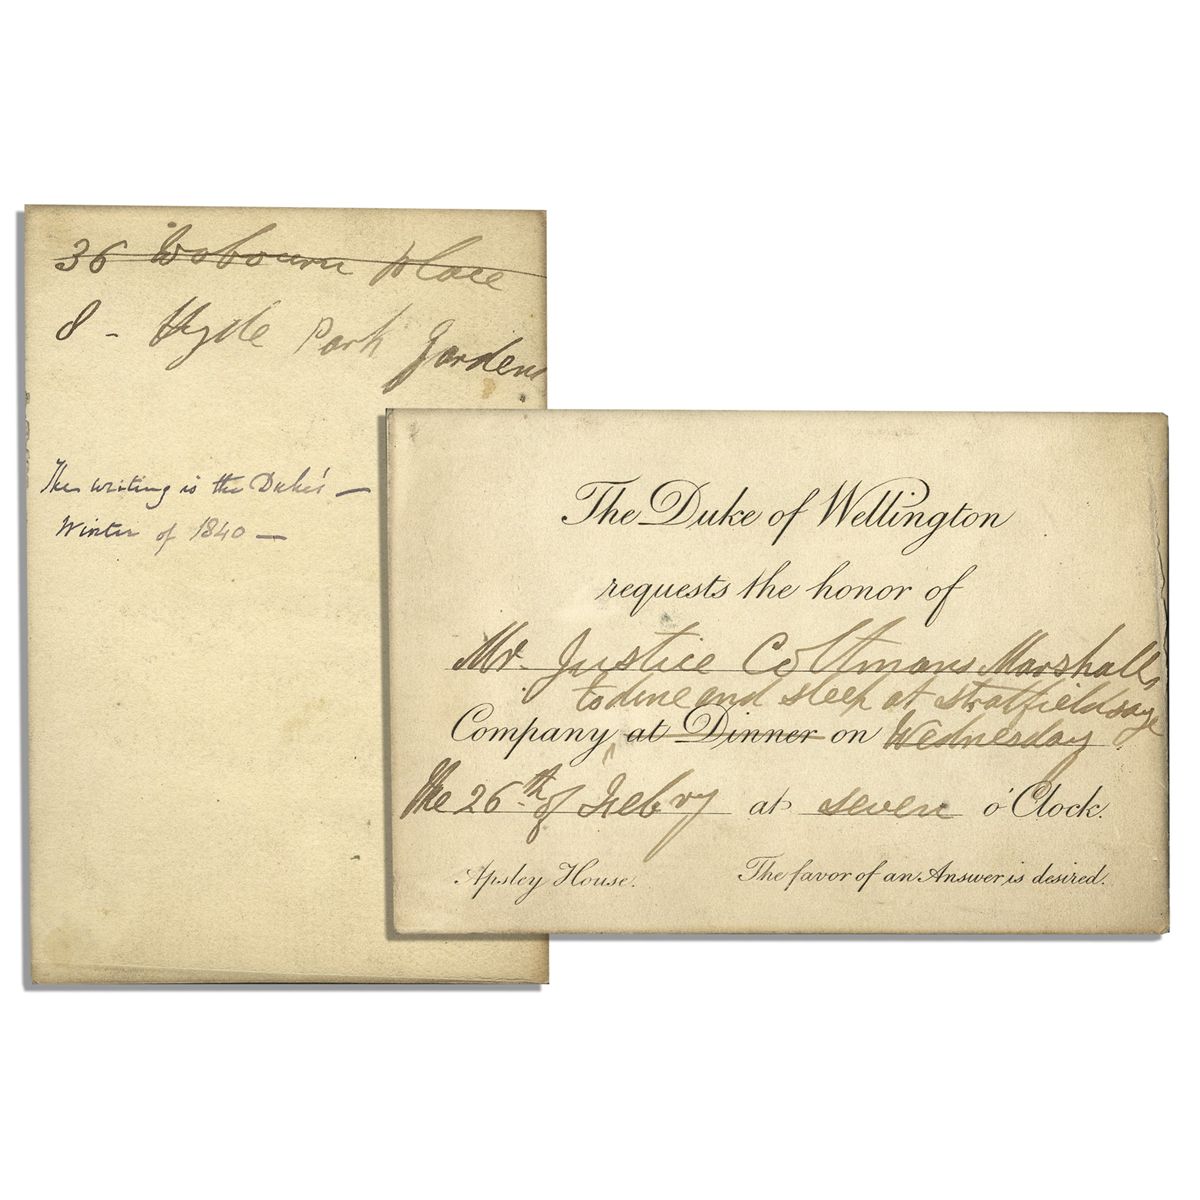 36 Wobourn Place
8 - Hyde Park Gardens
The writing is the Duke's —
Winter of 1840 —
The Duke of Wellington
requests the honor of
Mr. Justice Coltmans Marshalls
to dine and sleep at Stratfieldsaye
Company at Dinner on Wednesday
the 26th of Febry at seven o'Clock.
Apsley House. The favor of an Answer is desired.